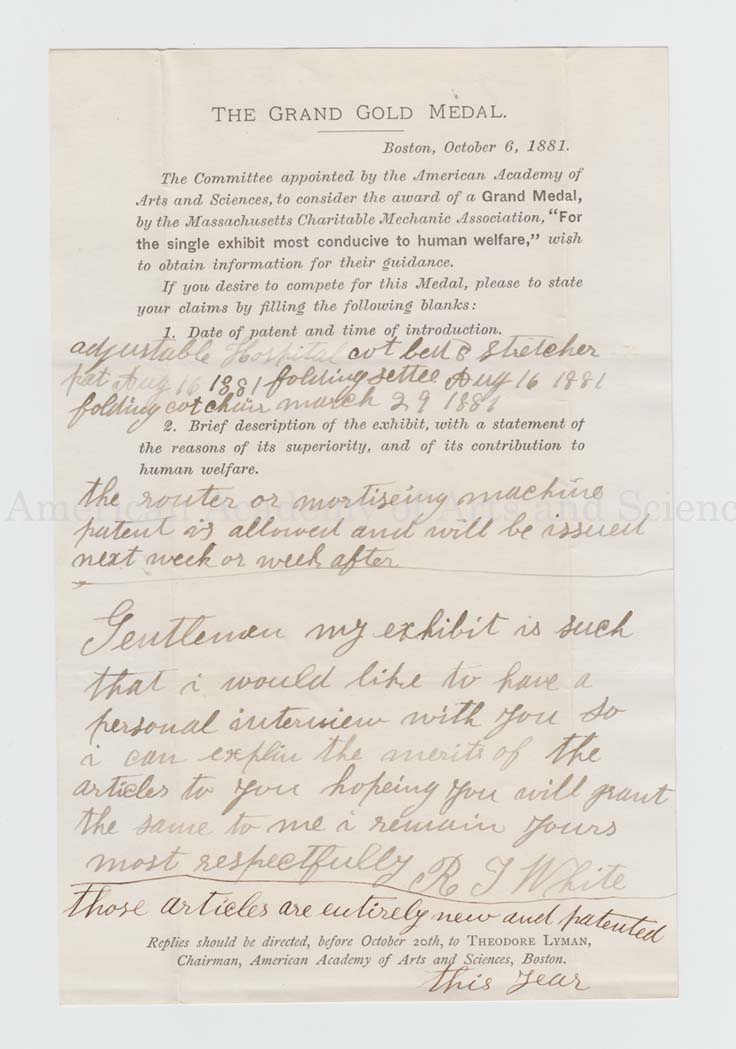 THE GRAND GOLD MEDAL.
Boston, October 6, 1881.
The Committee appointed by the American Academy of
Arts and Sciences, to consider the award of a Grand Medal,
by the Massachusetts Charitable Mechanic Association, "For
the single exhibit most conducive to human welfare," wish
to obtain information for their guidance.
If you desire to compete for this Medal, please to state
your claims by filling the following blanks:
1. Date of patent and time of introduction.
adjustable Hospital cot bed & Stretcher
pat Aug 16 1881 folding settee Aug 16 1881
folding cot chair march 29 1881
2. Brief description of the exhibit, with a statement of
the reasons of its superiority, and of its contribution to
human welfare.
the router or mortiseing machine
American Academy of Arts and Scienc
patent is allowed and will be issued
next week or week after
Gentlemen my exhibit is such
that i would like to have a
personal interview with you so
i can explin the merits of the
articles to you hopeing you will grant
the same to me i remain yours
most respectfully R T White
those articles are entirely new and patented
Replies should be directed, before October 20th, to THEODORE LYMAN,
Chairman, American Academy of Arts and Sciences, Boston.
this year